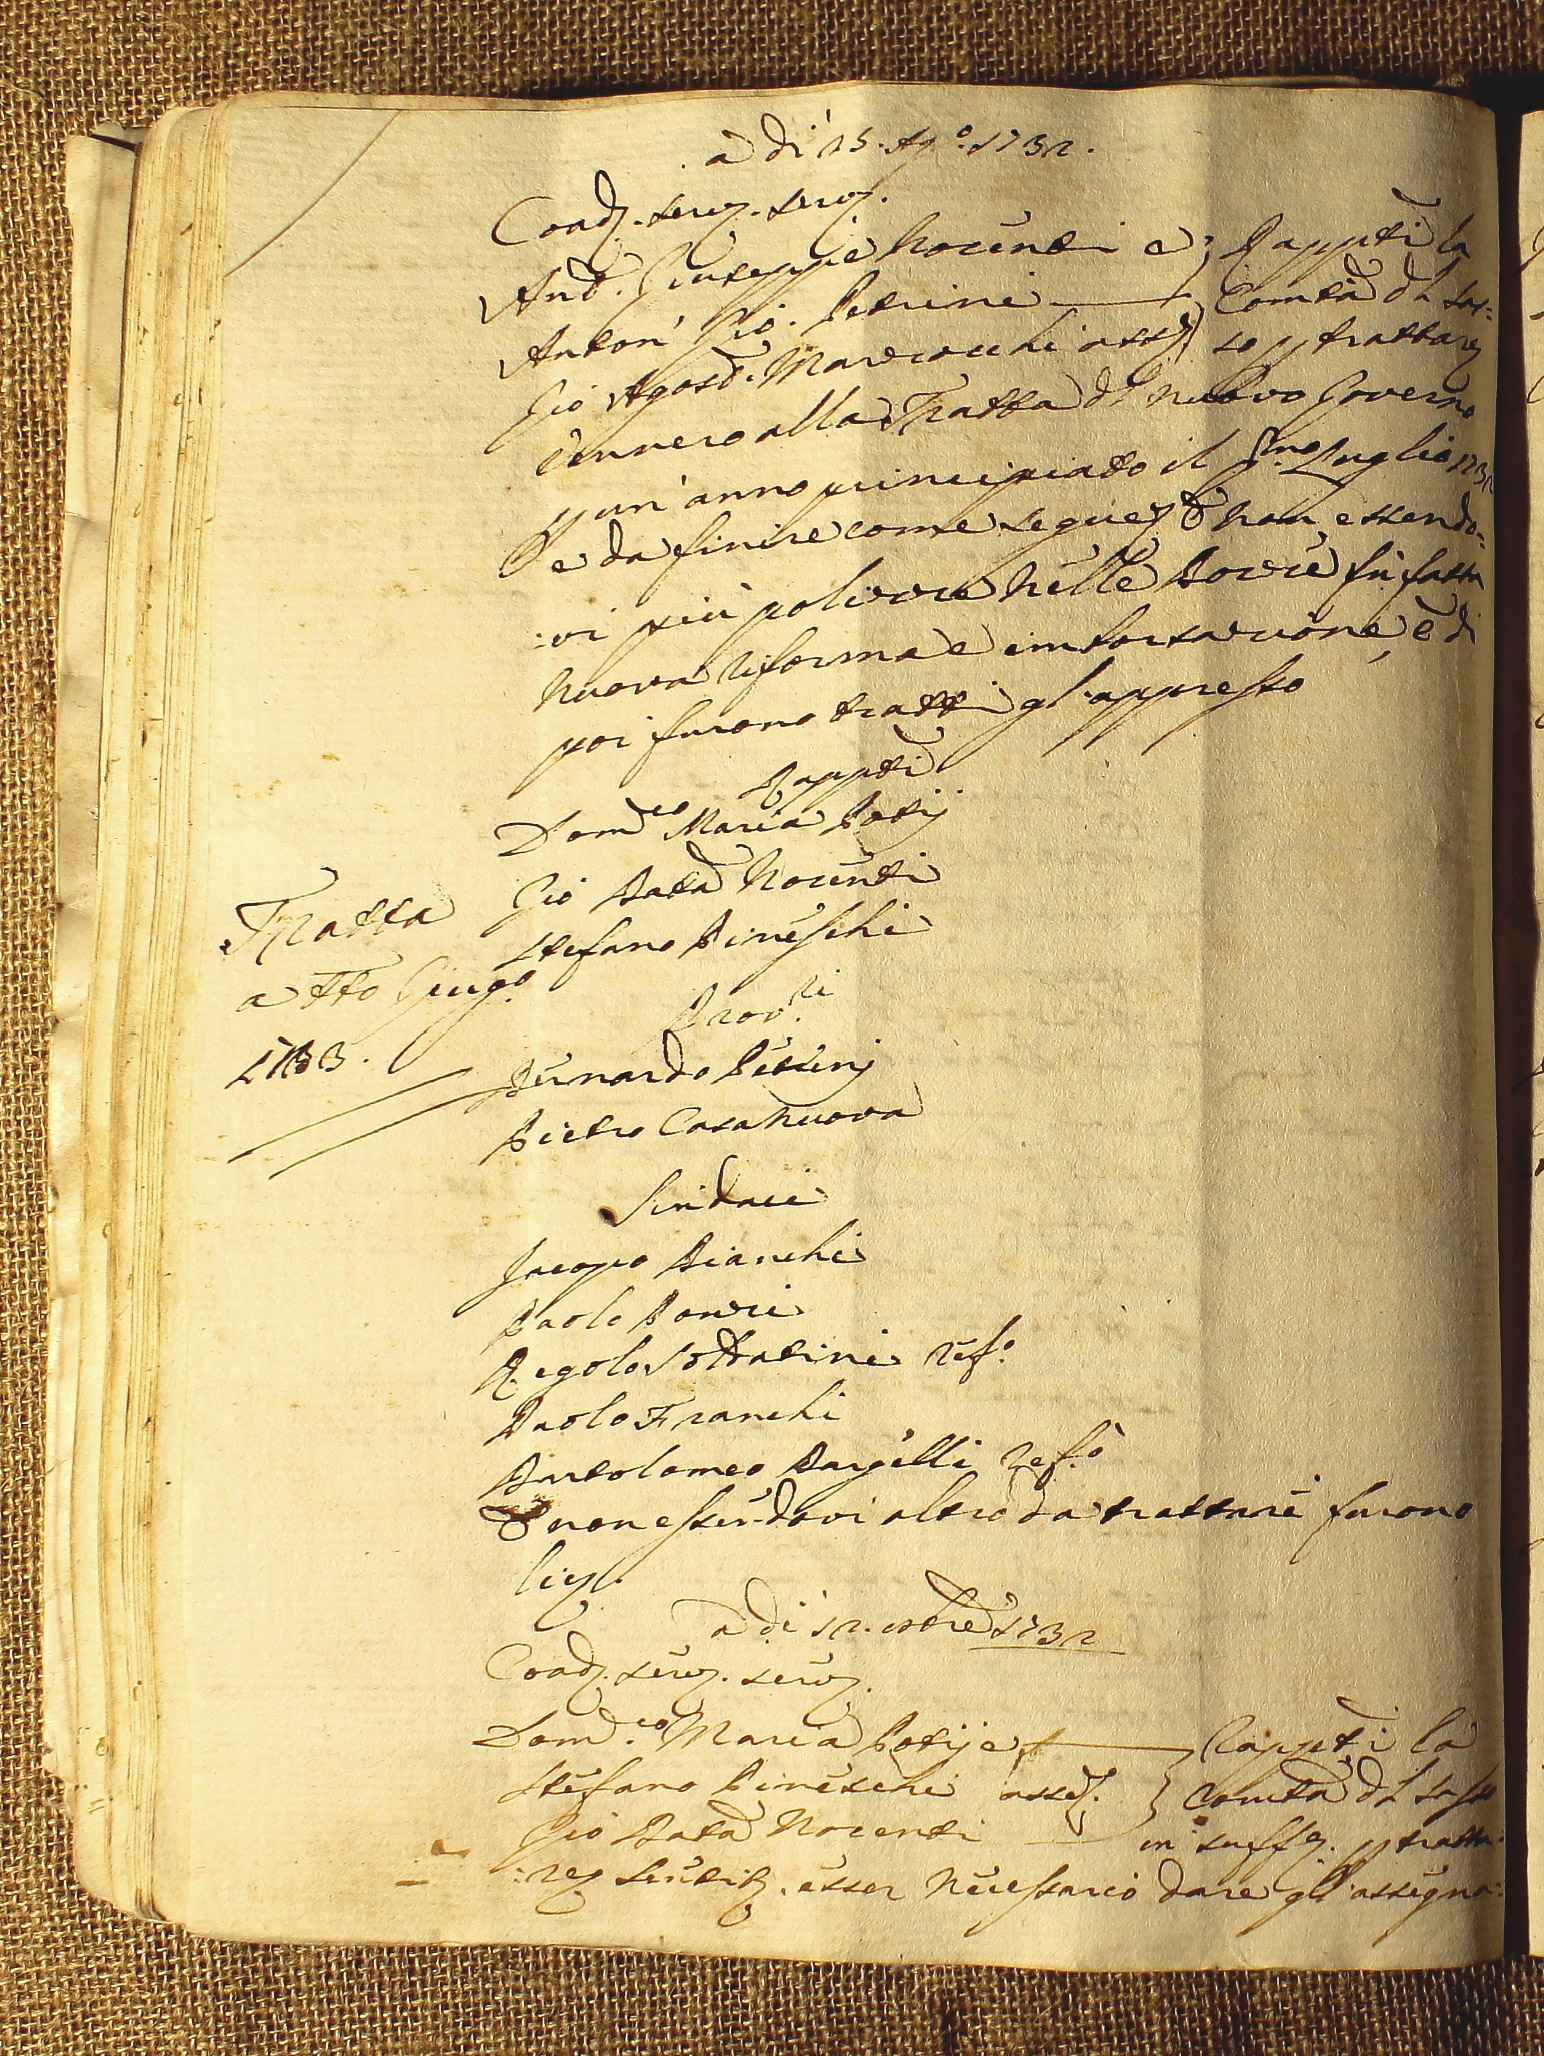 a dì 25. Ag.º 1732.
Coad. serv. serv.
And.ª Giuseppe Nocenti e } Rapp.ti la
Anton' Gio. Petrini } Com.tà d.l Sas=
Gio Agost.º Marcocchi ass. } so p trattare
Vennero alla Tratta d.l nuovo Governo
p un' anno principiato il p.mo Luglio 1732
e da finire come segue, e non essendo=
:vi più polizze nelle Borse fù fatta
nuova riforma e imborsazione, e di
poi furono tratti gl'appresso
Rapp.ti
Dom.co Maria Potij
Gio Batta Nocenti
Stefano Pineschi
Tratta
a tto Giug.º
1733.
Prov.ri
Bernardo Petrinj
Pietro Casanuova
Sindaci
Jacopo Bianchi
Paolo Ponzi
Regolo Sottatini ref.º
Paolo Franchi
Bartolomeo Bargelli ref.º
E non essendovi altro da trattare furono
liz.
a dì 12. 1732
Coad. serv. serv.
Dom.co Maria Potij e } Rapp.ti la
Stefano Pineschi ass. } Com.tà d.l Sasso
Gio Batta Nocenti in suff. p tratta=
:re, esser necessario dare gl'assegna=